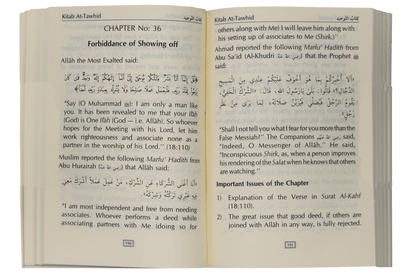 Kitab At-Tawhid كتاب التوحيد
CHAPTER No: 36
Forbiddance of Showing off
Allâh the Most Exalted said:
﴿قُلْ إِنَّمَا أَنَا بَشَرٌ مِثْلُكُمْ يُوحَى إِلَيَّ أَنَّمَا إِلَهُكُمْ إِلَهٌ وَاحِدٌ فَمَنْ كَانَ
يَرْجُو لِقَاءَ رَبِّهِ فَلْيَعْمَلْ عَمَلًا صَالِحًا وَلَا يُشْرِكْ بِعِبَادَةِ رَبِّهِ أَحَدًا﴾
"Say (O Muhammad): I am only a man like
you. It has been revealed to me that your Ilâh
(God) is One Ilâh (God — i.e. Allâh). So whoever
hopes for the Meeting with his Lord, let him
work righteousness and associate none as a
partner in the worship of his Lord." (18:110)
Muslim reported the following Marfu' Hadith from
Abu Hurairah
«أَنَا أَغْنَى الشُّرَكَاءِ عَنِ الشِّرْكِ، مَنْ عَمِلَ عَمَلًا أَشْرَكَ مَعِي
فِيهِ غَيْرِي تَرَكْتُهُ وَشِرْكَهُ»
"I am most independent and free from needing
associates. Whoever performs a deed while
associating partners with Me (doing so for
190
Kitab At-Tawhid كتاب التوحيد
others along with Me) I will leave him along with
his setting up of associates to Me (Shirk)."
Ahmad reported the following Marfu' Hadith from
Abu Sa'id (Al-Khudri) that the Prophet
said:
«أَلَا أُخْبِرُكُمْ بِمَا هُوَ أَخْوَفُ عَلَيْكُمْ عِنْدِي مِنَ الْمَسِيحِ
الدَّجَّالِ؟ قَالُوا: بَلَى يَا رَسُولَ اللهِ، قَالَ: الشِّرْكُ الْخَفِيُّ
يَقُومُ الرَّجُلُ فَيُصَلِّي فَيُزَيِّنُ صَلَاتَهُ، لِمَا يَرَى مِنْ نَظَرِ
رَجُلٍ»
"Shall I not tell you what I fear for you more than the
False Messiah?" The Companions said,
"Indeed, O Messenger of Allâh." He said,
"Inconspicuous Shirk, as, when a person improves
his rendering of the Salat when he knows that others
are watching."
Important Issues of the Chapter
1) Explanation of the Verse in Surat Al-Kahf
(18:110).
2) The great issue that good deed, if others are
joined with Allâh in any way, is fully rejected.
191